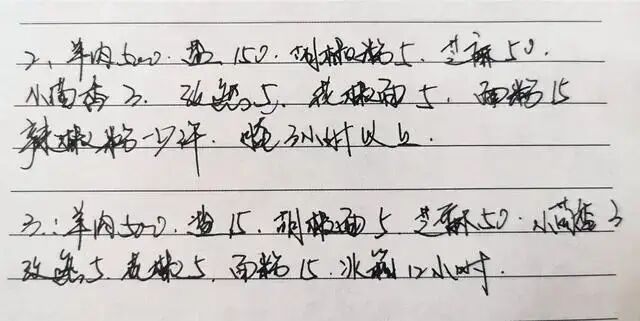 2、羊肉500.盐 150.胡椒粉5.芝麻50.
小茴香3.孜然5.花椒面5.面粉15
辣椒粉一少许.腌3小时以上.
3:羊肉500.盐15.胡椒面5 芝麻50.小茴香3
孜然5 花椒5.面粉15.冰箱12小时.